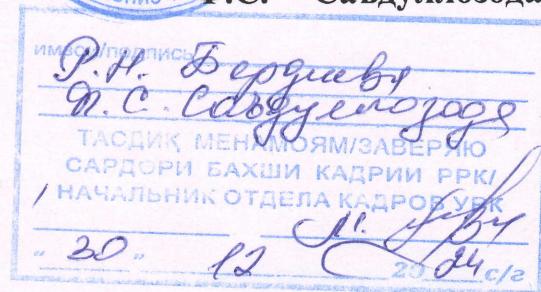 Саъдуллозода
имзои/подпись
Р.Н. Бердиева
Саъдуллозода
ТАСДИҚ МЕНАМОЯМ/ЗАВЕРЯЮ
САРДОРИ БАХШИ КАДРИИ РРК/
НАЧАЛЬНИК ОТДЕЛА КАДРОВ УРК
"30" 12 2024 с/г